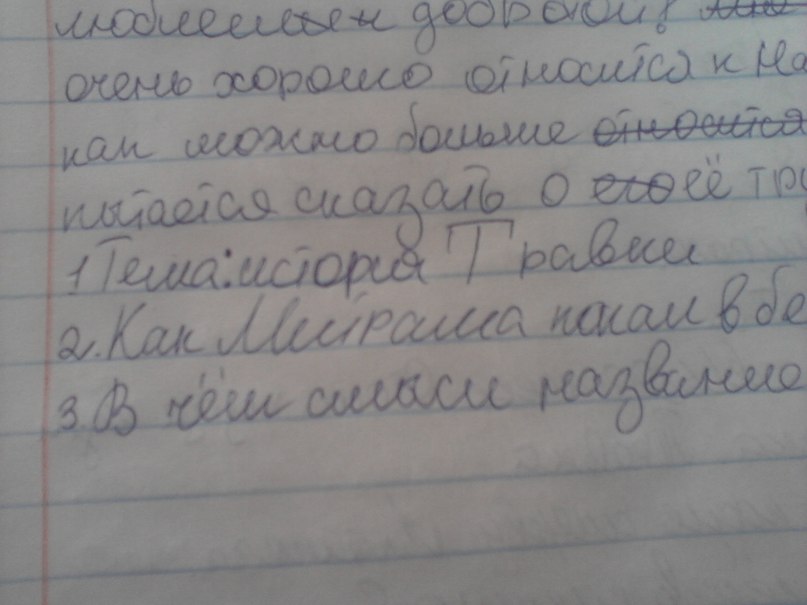 очень хорошо относится к На
как можно больше относится
пытается сказать о его её тр
1 Тема: история Травки
2. Как Митраша попал в бе
3. В чём смысл название